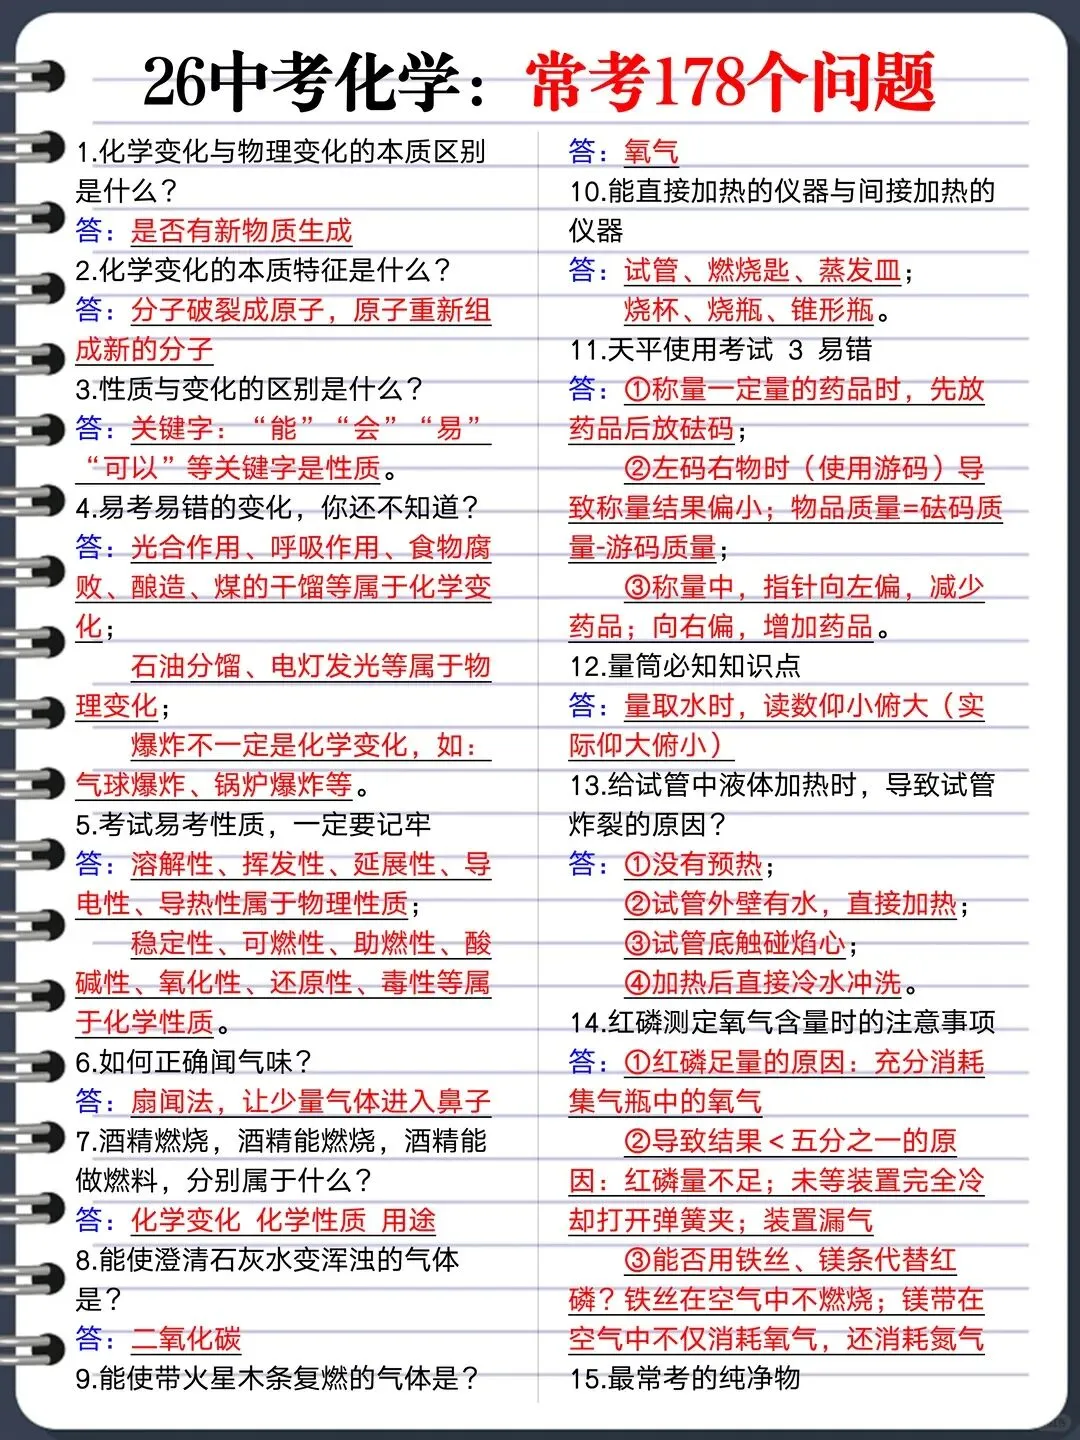 26中考化学：常考178个问题
1.化学变化与物理变化的本质区别
是什么？
答：是否有新物质生成
2.化学变化的本质特征是什么？
答：分子破裂成原子，原子重新组
成新的分子
3.性质与变化的区别是什么？
答：关键字：“能”“会”“易”
“可以”等关键字是性质。
4.易考易错的变化，你还不知道？
答：光合作用、呼吸作用、食物腐
败、酿造、煤的干馏等属于化学变
化；
石油分馏、电灯发光等属于物
理变化；
爆炸不一定是化学变化，如：
气球爆炸、锅炉爆炸等。
5.考试易考性质，一定要记牢
答：溶解性、挥发性、延展性、导
电性、导热性属于物理性质；
稳定性、可燃性、助燃性、酸
碱性、氧化性、还原性、毒性等属
于化学性质。
6.如何正确闻气味？
答：扇闻法，让少量气体进入鼻子
7.酒精燃烧，酒精能燃烧，酒精能
做燃料，分别属于什么？
答：化学变化 化学性质 用途
8.能使澄清石灰水变浑浊的气体
是？
答：二氧化碳
9.能使带火星木条复燃的气体是？
答：氧气
10.能直接加热的仪器与间接加热的
仪器
答：试管、燃烧匙、蒸发皿；
烧杯、烧瓶、锥形瓶。
11.天平使用考试 3 易错
答：①称量一定量的药品时，先放
药品后放砝码；
②左码右物时（使用游码）导
致称量结果偏小；物品质量=砝码质
量-游码质量；
③称量中，指针向左偏，减少
药品；向右偏，增加药品。
12.量筒必知知识点
答：量取水时，读数仰小俯大（实
际仰大俯小）
13.给试管中液体加热时，导致试管
炸裂的原因？
答：①没有预热；
②试管外壁有水，直接加热；
③试管底触碰焰心；
④加热后直接冷水冲洗。
14.红磷测定氧气含量时的注意事项
答：①红磷足量的原因：充分消耗
集气瓶中的氧气
②导致结果＜五分之一的原
因：红磷量不足；未等装置完全冷
却打开弹簧夹；装置漏气
③能否用铁丝、镁条代替红
磷？铁丝在空气中不燃烧；镁带在
空气中不仅消耗氧气，还消耗氮气
15.最常考的纯净物